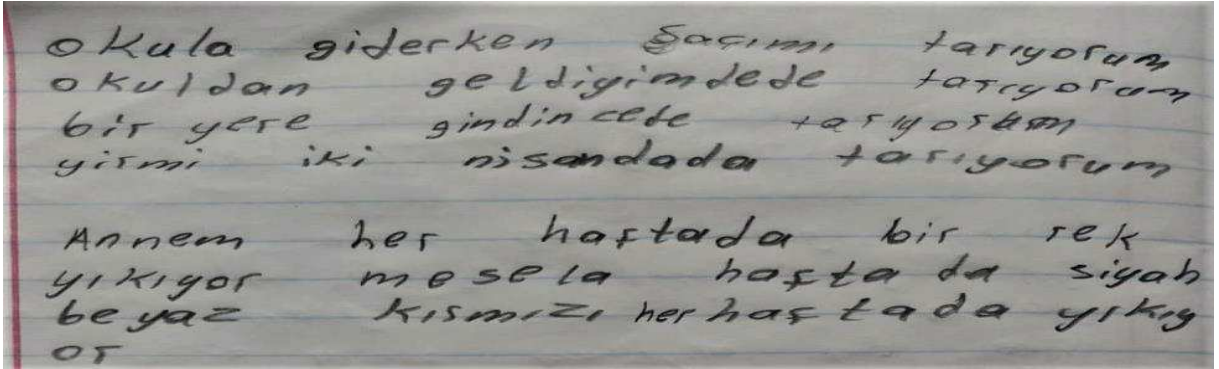 okula giderken Saçımı tarıyorum
okuldan geldiyimdede tarıyorum
bir yere gindincede tarıyorum
yirmi iki nisandada tarıyorum
Annem her haftada bir rek
yıkıyor mesela hafta da siyah
beyaz kısmızı her haftada yıkıy
or